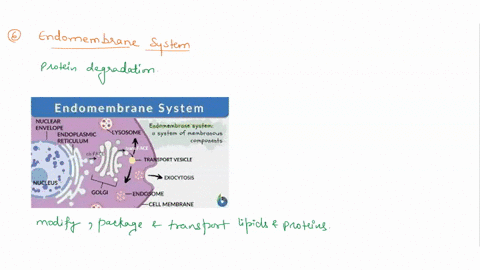 6 Endomembrane System
Protein degradation
Endomembrane System
NUCLEAR
ENVELOPE
ENDOPLASMIC
RETICULUM
LYSOSOME
Endomembrane system:
a system of membranous
components
TRANSPORT VESICLE
EXOCYTOSIS
NUCLEUS
GOLGI
ENDOSOME
CELL MEMBRANE
modify, package & transport lipids & proteins.